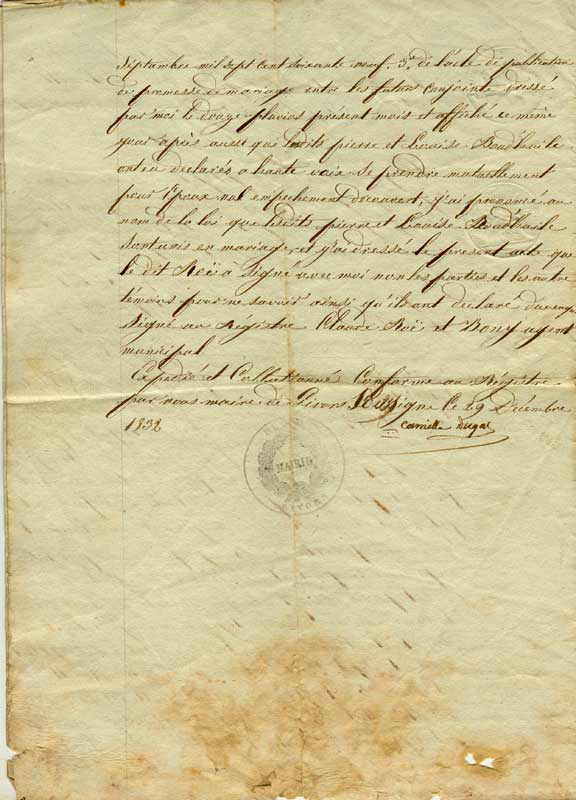 Septembre mil sept cent soixante neuf. 3.° de l'acte de publication
de promesse de mariage entre les futurs conjoints dressé
par moi le douze pluvios présent mois et affiché ce même
jour après aussi que lesdits pierre et Louise
ont eu declarés a haute voix se prendre mutuellement
pour Epoux nul empechement decouvert, j'ai prononcé au
nom de la loi que lesdits pierre et Louise
sont unis en mariage, et j'ai dressé le present acte que
le dit Roï a Signé avec moi non les parties et les autre
témoins pour ne savoir ainsi qu'ils ont declaré
Signé au Régistre Claude Roï et Bony agent
municipal
Expedié et Collationné Conforme au Régistre
par nous maire de Givors Soussigné le 29 Décembre
1832 Camille Dugas
MAIRIE
GIVORS